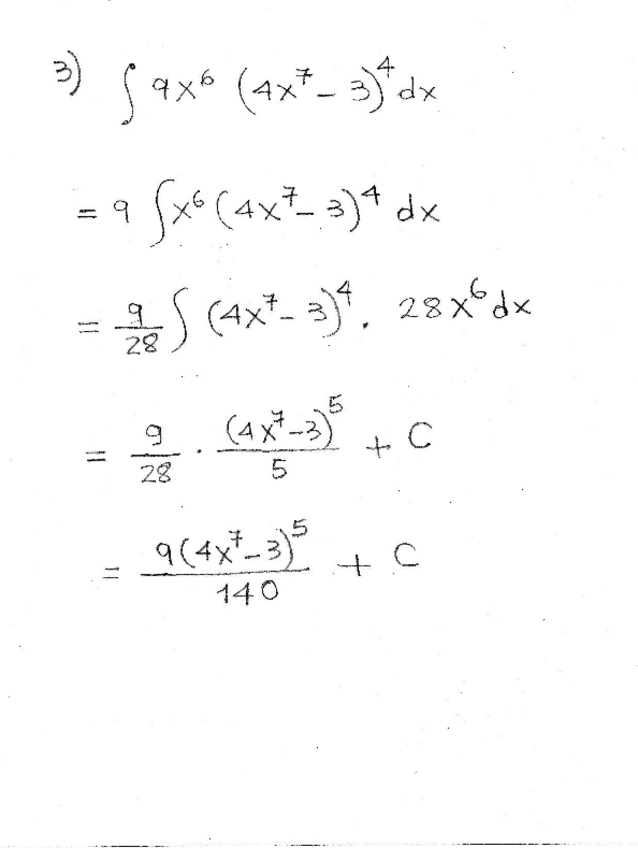 3) ∫ 9x⁶ (4x⁷ − 3)⁴ dx
= 9 ∫ x⁶ (4x⁷ − 3)⁴ dx
= 9/28 ∫ (4x⁷ − 3)⁴ . 28x⁶ dx
= 9/28 · (4x⁷ − 3)⁵/5 + C
= 9(4x⁷ − 3)⁵/140 + C